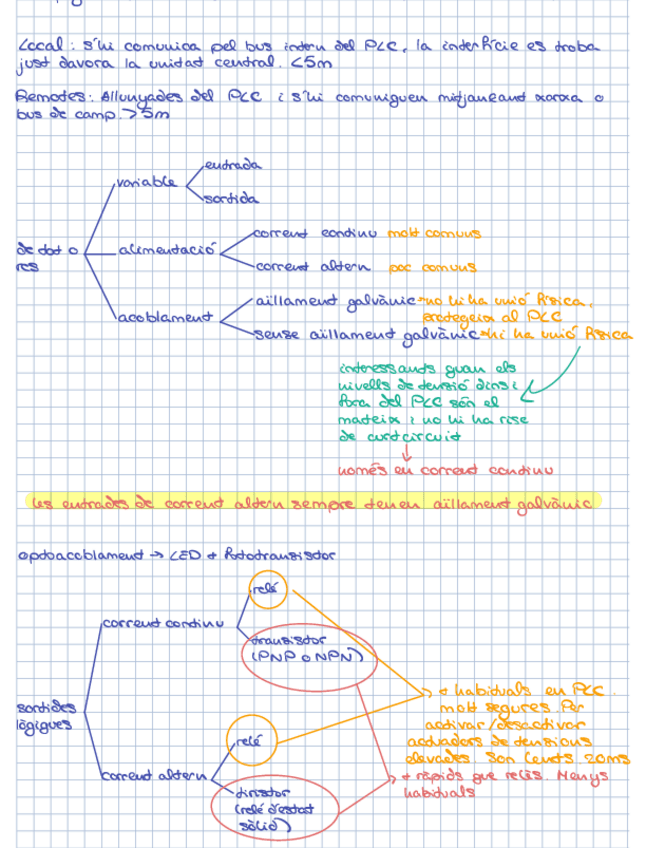 Local: s'hi comunica pel bus intern del PLC, la interfície es troba
just davora la unidat central. <5m
Remotes: Allunyades del PLC i s'hi comuniquen mitjançant xarxa o
bus de camp. >5m
variable
entrada
sortida
de tot o
res
alimentació
corrent continu molt comuns
corrent altern poc comuns
acoblament
aïllament galvànic → no hi ha unió física,
protegeix al PLC
sense aïllament galvànic → hi ha unió física
interessants quan els
nivells de tensió dins i
fora del PLC són el
mateix i no hi ha risc
de curtcircuit
només en corrent continu
les entrades de corrent altern sempre tenen aïllament galvànic
optoacoblament → LED + fototransistor
sortides
lògiques
corrent continu
relé
transistor
(PNP o NPN)
corrent altern
relé
tiristor
(relé d'estat
sòlid)
+ habituals en PLC.
molt segures. Per
activar/desactivar
actuadors de tensions
elevades. Són lents 20ms
+ ràpids que relés. Menys
habituals